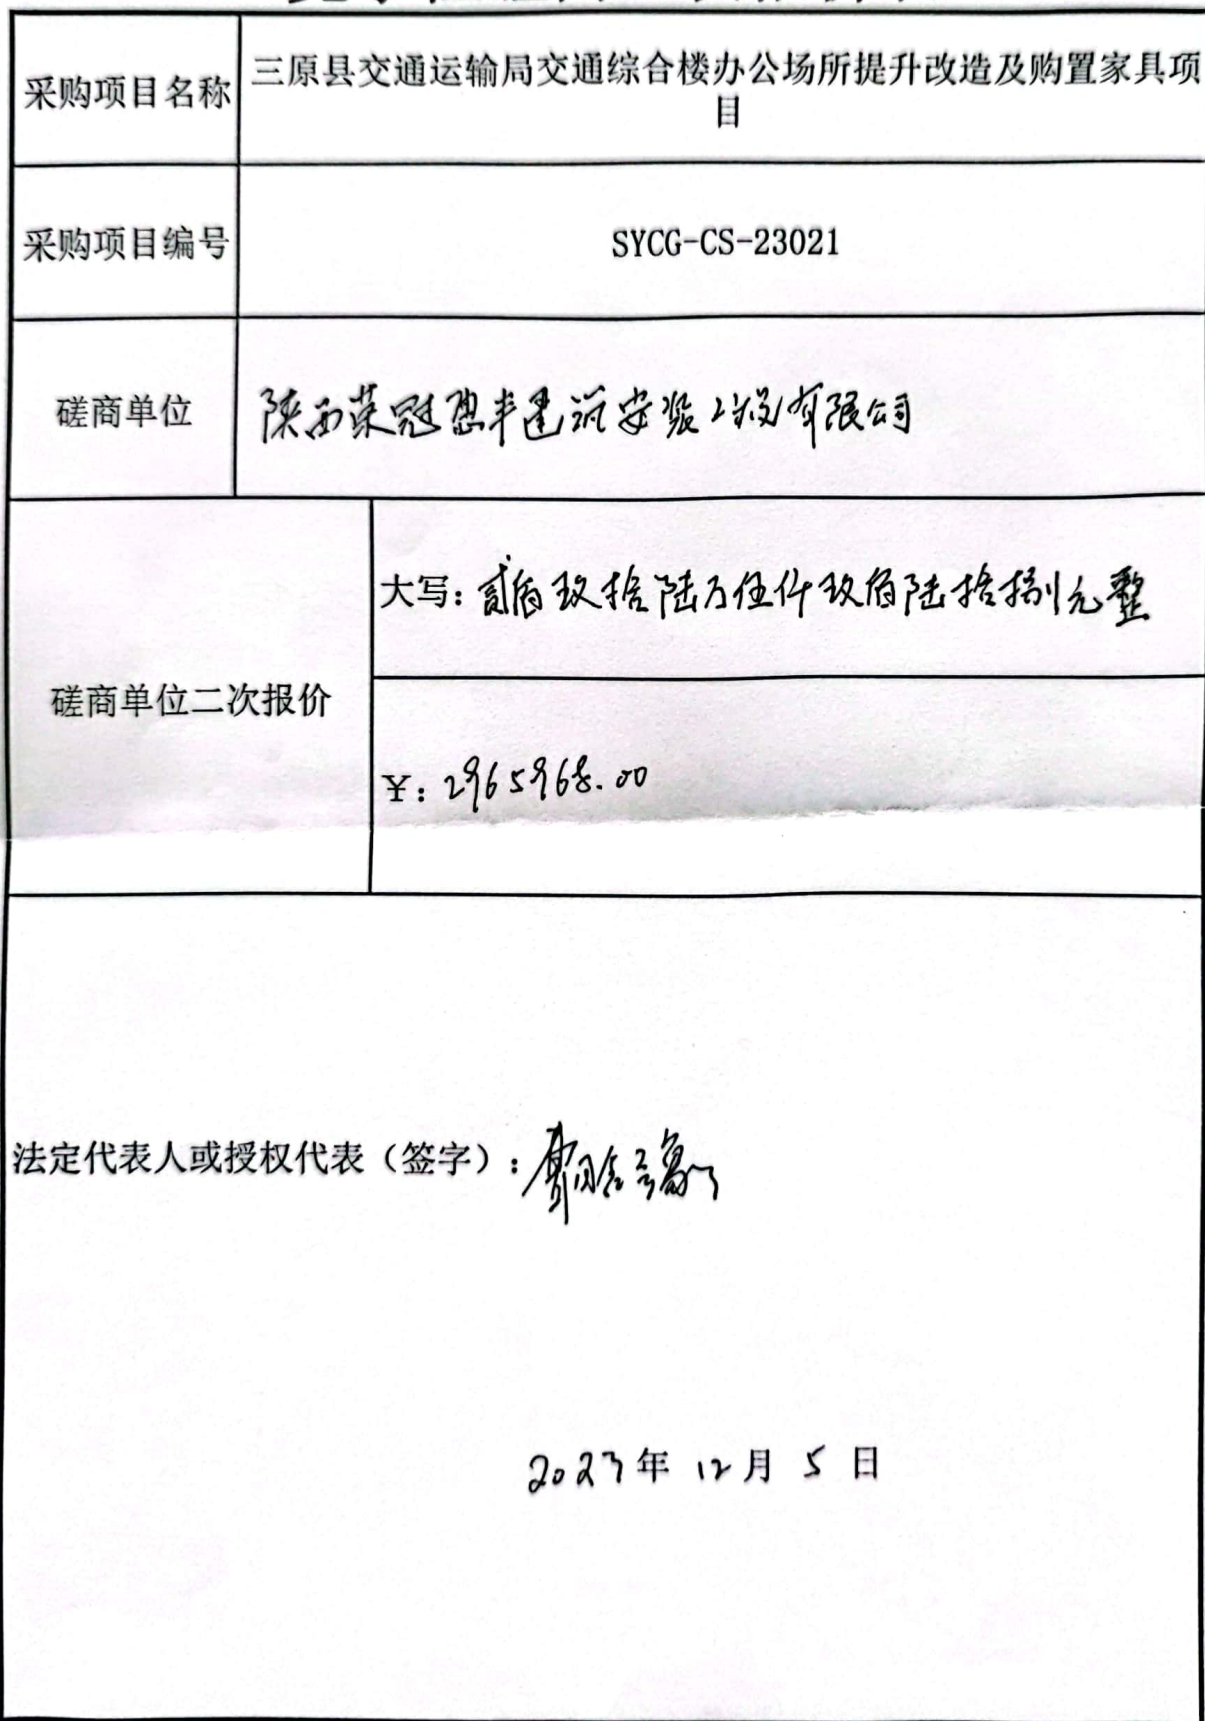 采购项目名称
三原县交通运输局交通综合楼办公场所提升改造及购置家具项
目
采购项目编号
SYCG-CS-23021
磋商单位
陕西荣冠恐丰建筑安装工程有限公司
磋商单位二次报价
大写：贰佰玖拾陆万伍仟玖佰陆拾捌元整
¥：2965968.00
法定代表人或授权代表（签字）：
2023年 12月 5 日